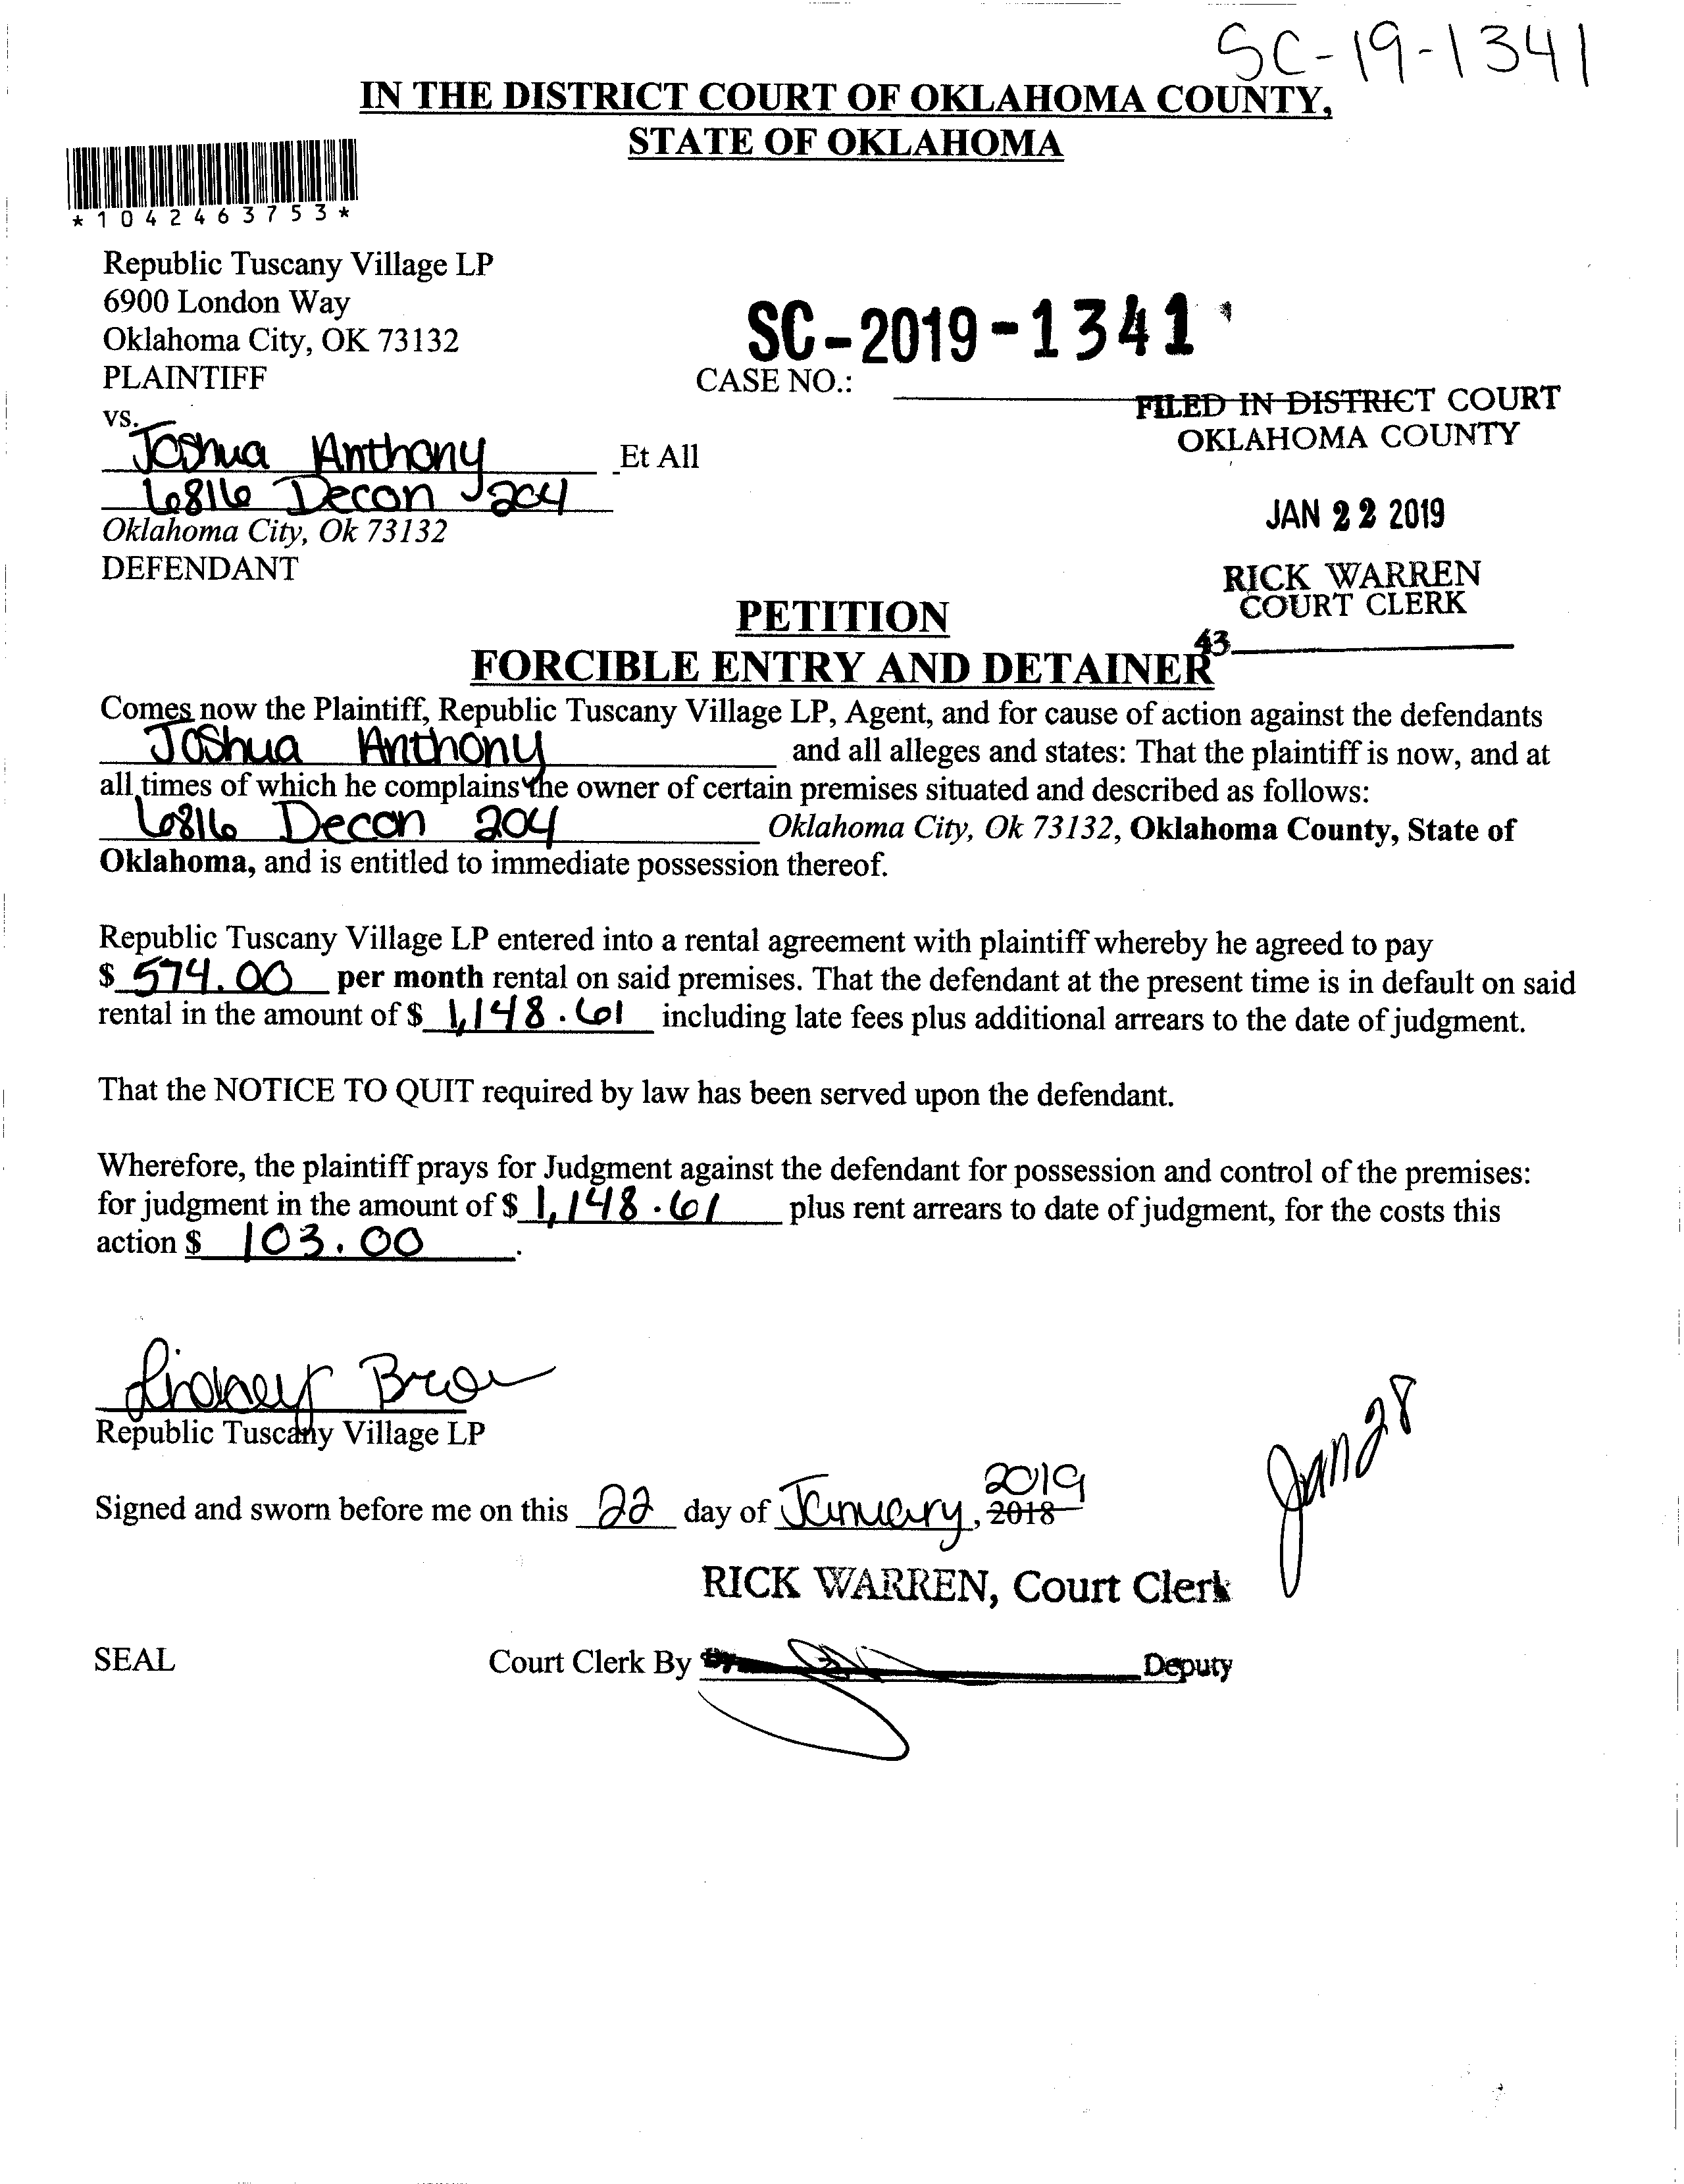 SC-19-1341
IN THE DISTRICT COURT OF OKLAHOMA COUNTY,
STATE OF OKLAHOMA
*1042463753*
Republic Tuscany Village LP
6900 London Way
Oklahoma City, OK 73132
PLAINTIFF
SC-2019-1341
CASE NO.:
FILED IN DISTRICT COURT
OKLAHOMA COUNTY
vs.
Joshua Anthony Et All
6816 Decon 204
Oklahoma City, Ok 73132
DEFENDANT
JAN 22 2019
RICK WARREN
COURT CLERK
43
PETITION
FORCIBLE ENTRY AND DETAINER
Comes now the Plaintiff, Republic Tuscany Village LP, Agent, and for cause of action against the defendants
Joshua Anthony and all alleges and states: That the plaintiff is now, and at
all times of which he complains the owner of certain premises situated and described as follows:
6816 Decon 204 Oklahoma City, Ok 73132, Oklahoma County, State of
Oklahoma, and is entitled to immediate possession thereof.
Republic Tuscany Village LP entered into a rental agreement with plaintiff whereby he agreed to pay
$ 574.00 per month rental on said premises. That the defendant at the present time is in default on said
rental in the amount of $ 1,148.61 including late fees plus additional arrears to the date of judgment.
That the NOTICE TO QUIT required by law has been served upon the defendant.
Wherefore, the plaintiff prays for Judgment against the defendant for possession and control of the premises:
for judgment in the amount of $ 1,148.61 plus rent arrears to date of judgment, for the costs this
action $ 103.00.
Republic Tuscany Village LP
Jan 28
2019
Signed and sworn before me on this 22 day of January, 2018
RICK WARREN, Court Clerk
SEAL Court Clerk By Deputy